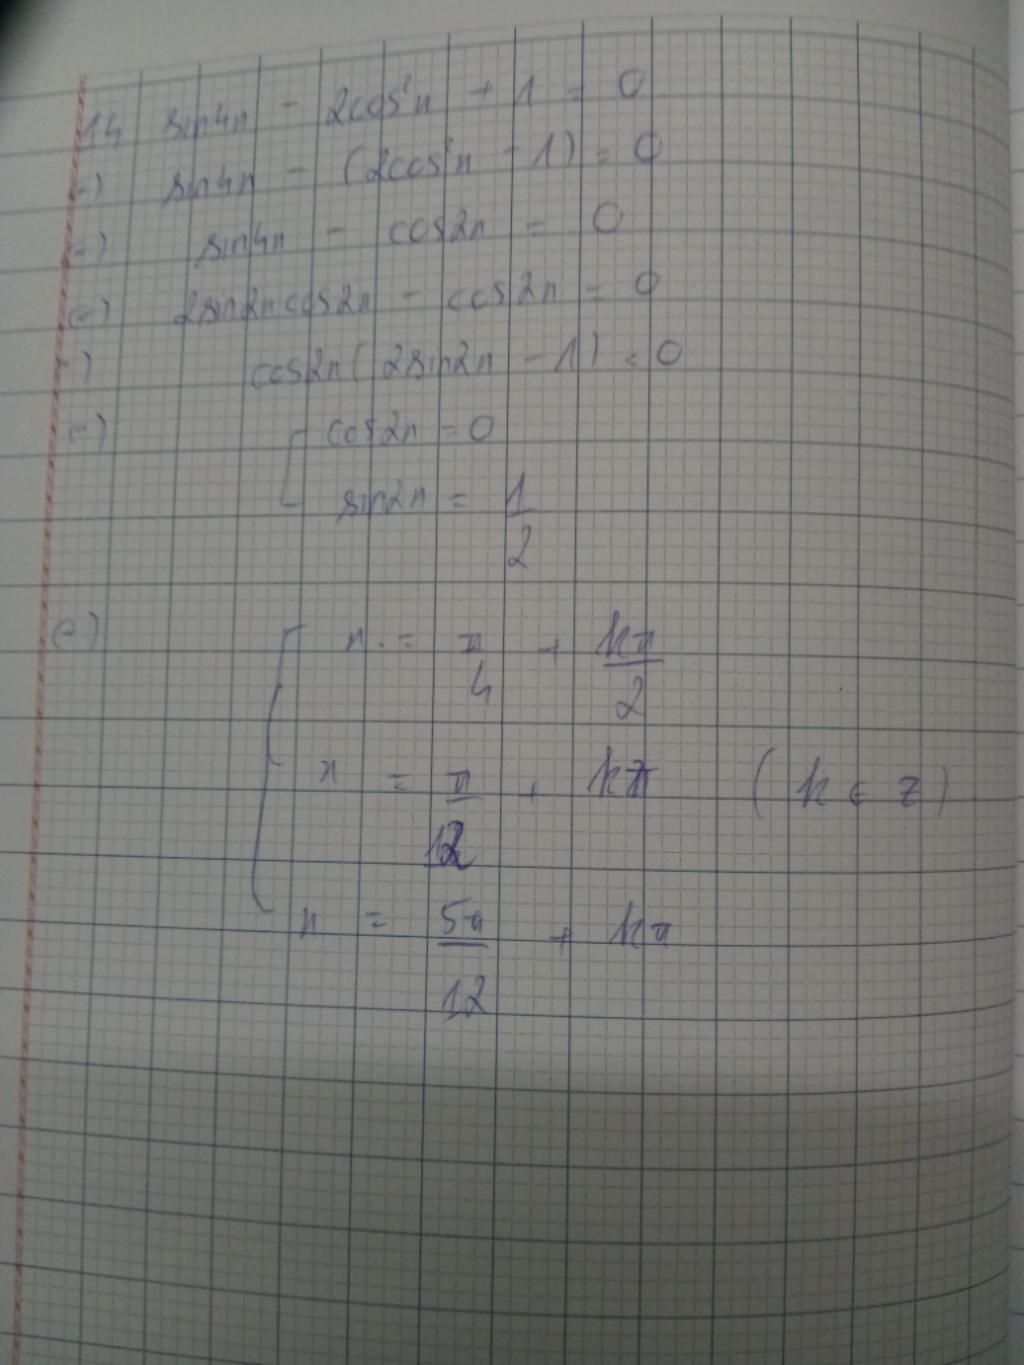 14 sin4x - 2cos²x + 1 = 0
(=) sin4x - (2cos²x - 1) = 0
(=) sin4x - cos2x = 0
(=) 2sin2xcos2x - cos2x = 0
(=) cos2x(2sin2x - 1) = 0
(=) [ cos2x = 0
sin2x = 1/2
(=) [ x = π/4 + kπ/2
x = π/12 + kπ (k ∈ Z)
x = 5π/12 + kπ